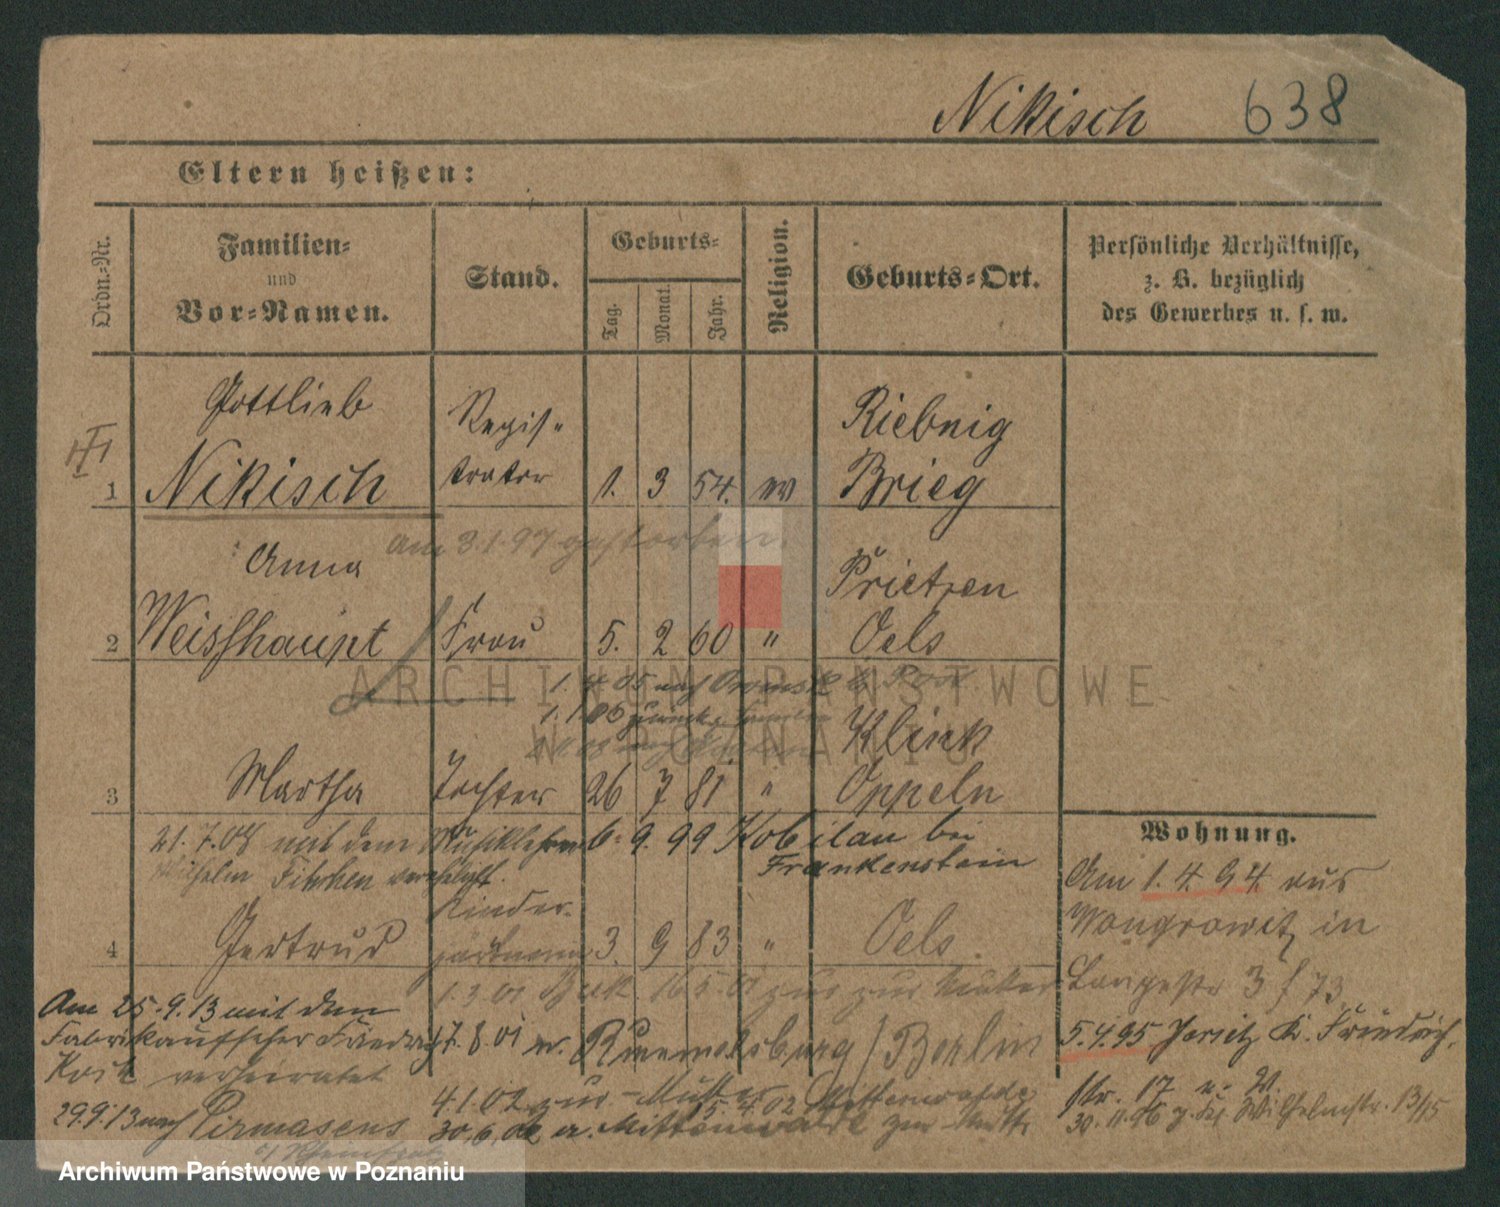 Nikisch 638
Eltern heißen:
Ordn.-Nr.
Familien-
und
Vor-Namen.
Stand.
Geburts-
Tag.
Monat.
Jahr.
Religion.
Geburts-Ort.
Persönliche Verhältnisse,
z. B. bezüglich
des Gewerbes u. s. w.
Gottlieb Regis- Riebnig
1 Nikisch trator 1. 3 54. ev Brieg
am 3.1.97 gestorben.
Anna Prietzen
2 Weisshaupt Frau 5. 2 60 " Oels
1. 4 05 nach
1. 1 06 zurück
Klink
3 Martha Tochter 26 7 81 " Oppeln
21.7.08 mit dem Musiklehrer 6. 9. 99 Kobilau bei
Wilhelm verehelicht. Frankenstein
Kinder-
4 Gertrud gärtnerin 3. 9 83 " Oels
1.3.01 16 5. 01 zur Mutter
Am 25.9.13 mit dem
Friedrich 17.8.01 n. Rummelsburg / Berlin
verheiratet
4.1.02 zur Mutter 15.4.02 Mittenwalde
29.9.13 nach Pirmasens 30.6.02 a. Mittenwalde zur Mutt.
Wohnung.
Am 1. 4. 94 aus
Wongrowitz in
Langestr 3 / 73
5.4.95 Jersitz K. Friedrich
str. 17 n. W.
30.11.96 Wilhelmstr. 13/15
ARCHIWUM PAŃSTWOWE
W POZNANIU
Archiwum Państwowe w Poznaniu